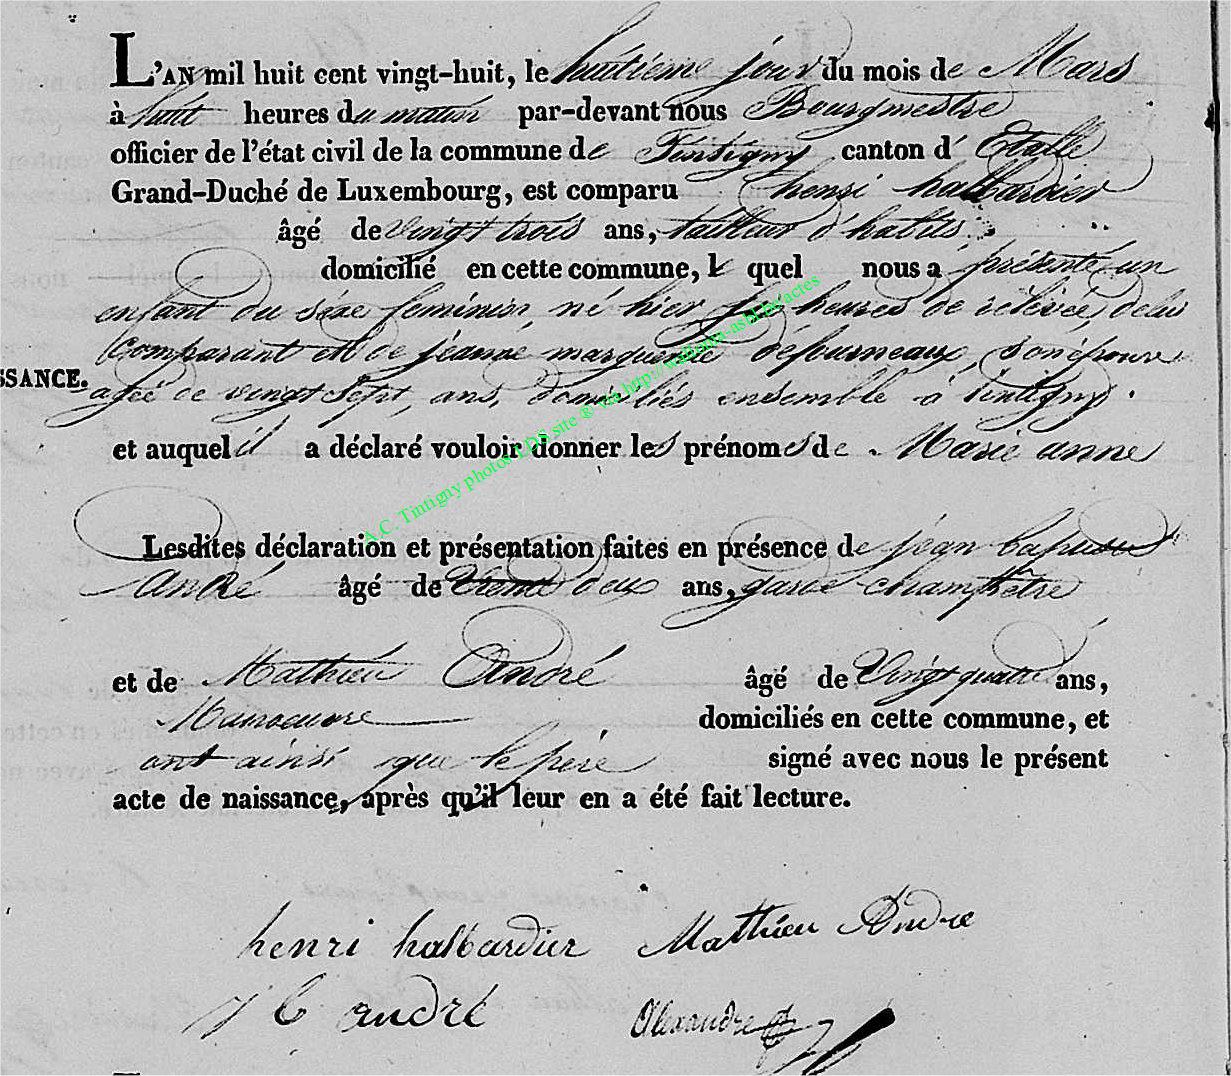 L'AN mil huit cent vingt-huit, le huitième jour du mois de Mars
à huit heures du matin par-devant nous Bourgmestre
officier de l'état civil de la commune de Tintigny canton d' Etalle
Grand-Duché de Luxembourg, est comparu henri halbardier
âgé de vingt trois ans, tailleur d'habits
domicilié en cette commune, le quel nous a présenté un
enfant du séxe feminin né hier heures de relevée, de lui
Comparant et de jeanne marguerite défourneaux, son épouse
agée de vingt sept, ans, domiciliés ensemble à tintigny.
SSANCE.
et auquel il a déclaré vouloir donner les prénoms de Marie anne
Lesdites déclaration et présentation faites en présence de jean baptiste
André âgé de trente deux ans, garde champêtre
et de Mathieu André âgé de Vingt quatre ans,
Manoeuvre domiciliés en cette commune, et
ont ainsi que le pére signé avec nous le présent
acte de naissance, après qu'il leur en a été fait lecture.
A.C. Tintigny photos LDS site ® via http://wallonia-asbl.be/actes
henri halbardier Mathieu Andre
J B andré Alexandre